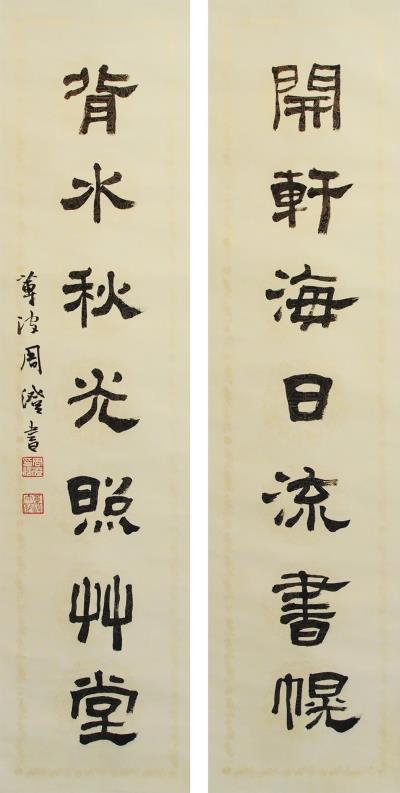 開軒海日流書幌
背水秋光照艸堂
蓴波周澄書